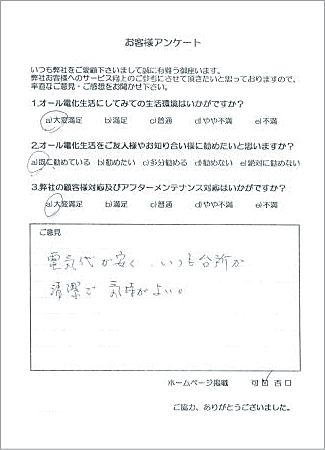 お客様アンケート
いつも弊社をご愛顧下さいまして誠に有難う御座います。
弊社お客様へのサービス向上のご参考にさせて頂きたいと思っておりますので、
率直なご意見・ご感想をお聞かせ下さい。
1.オール電化生活にしてみての生活環境はいかがですか?
a)大変満足 b)満足 c)普通 d)やや不満 e)不満
2.オール電化生活をご友人様やお知り合い様に勧めたいと思いますか?
a)既に勧めている b)勧めたい c)多分勧める d)勧めない e)絶対に勧めない
3.弊社の顧客様対応及びアフターメンテナンス対応はいかがですか?
a)大変満足 b)満足 c)普通 d)やや不満 e)不満
ご意見
電気代が安く、いつも台所が
清潔で 気持がよい。
ホームページ掲載 可 否 口
ご協力、ありがとうございました。